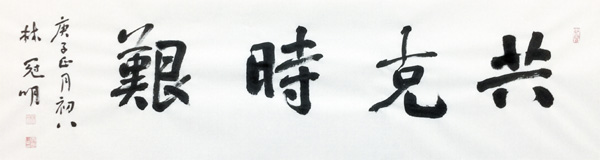 共克時艱
庚子正月初八
林冠明